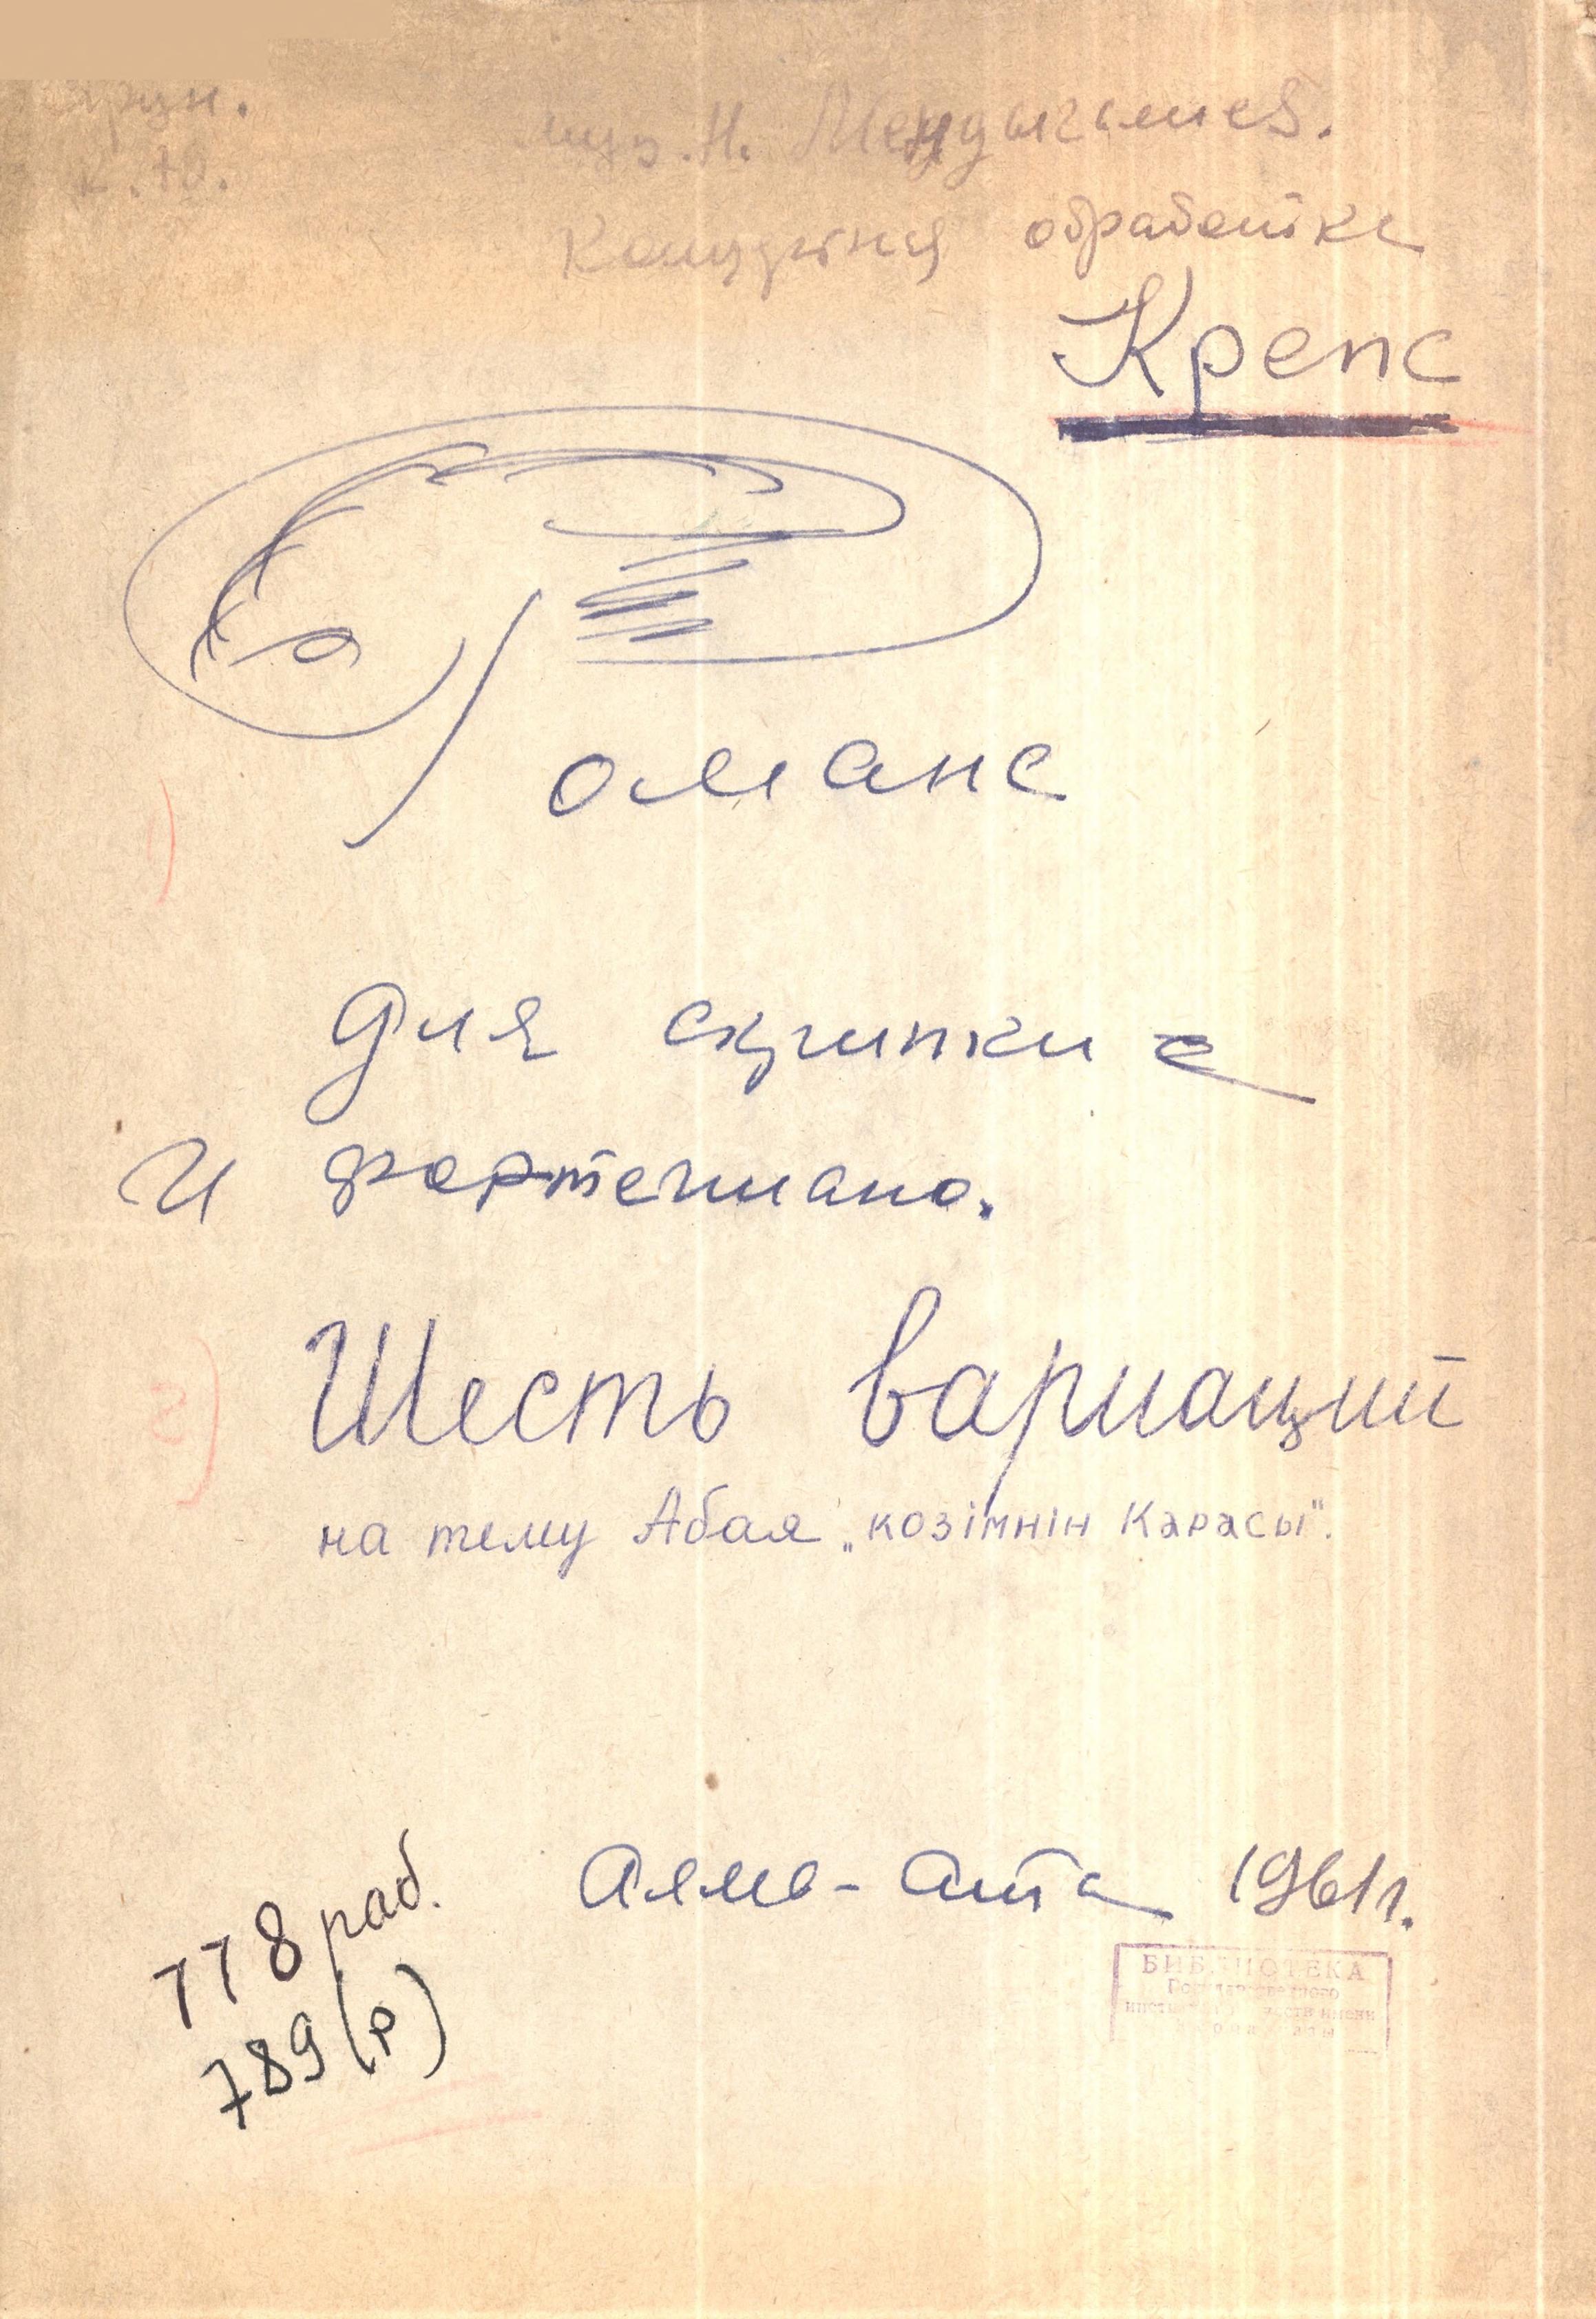 муз. Н. Мендыгалиев.
обработка
Крепс
Романс
1)
для скрипки с
и фортепиано.
2)
Шесть вариаций
на тему Абая „козімнін Карасы".
Алма-Ата 1961 г.
778 раб.
789 (р)
БИБЛИОТЕКА
Государственного
института искусств имени